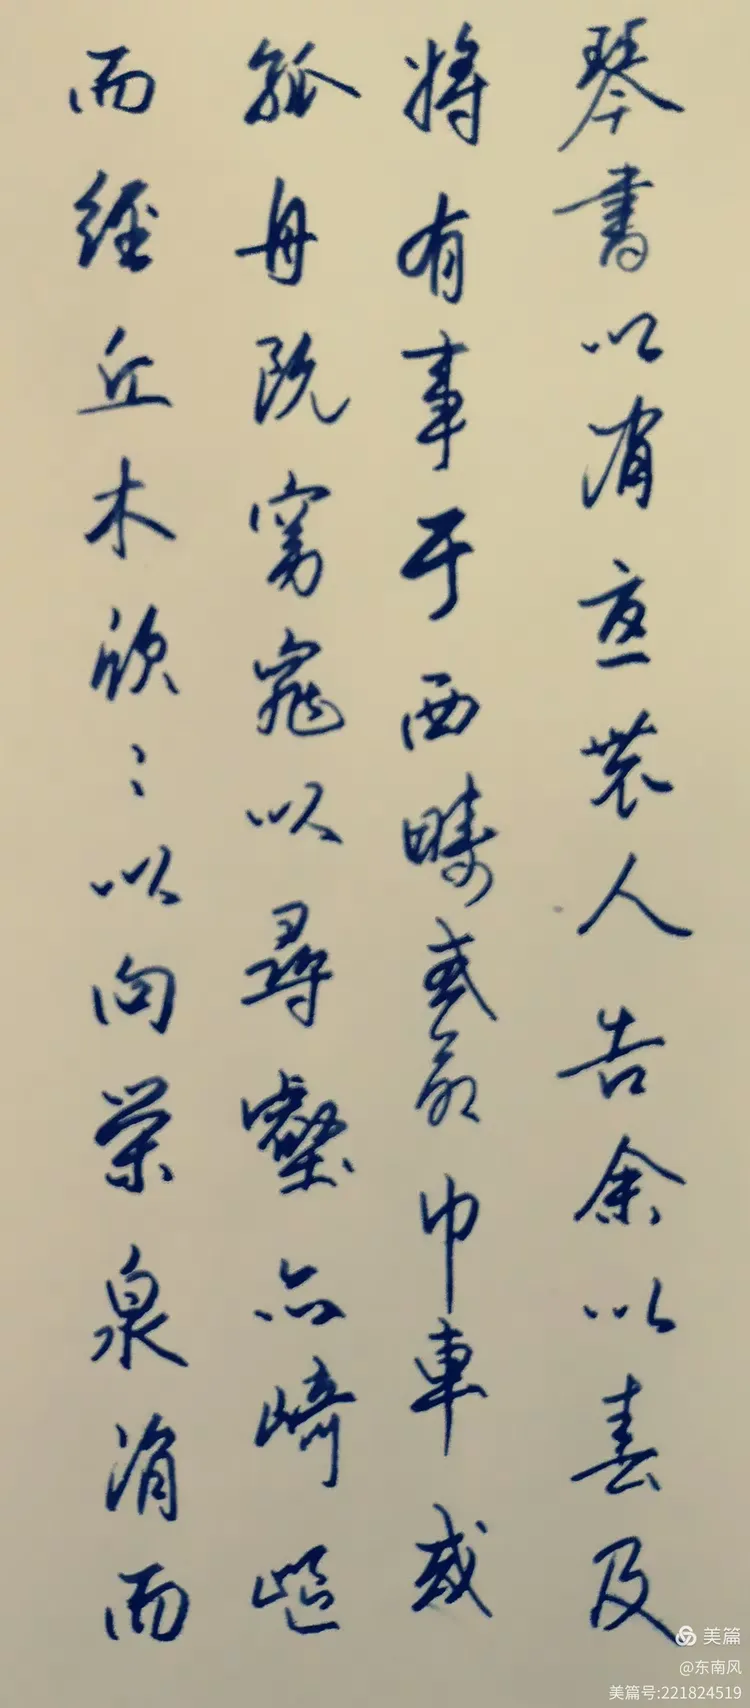 琴書以消憂農人告余以春及
將有事于西疇或命巾車或
孤舟既窈窕以尋壑亦崎嶇
而經丘木欣〻以向榮泉涓而
美篇
@东南风
美篇号:221824519